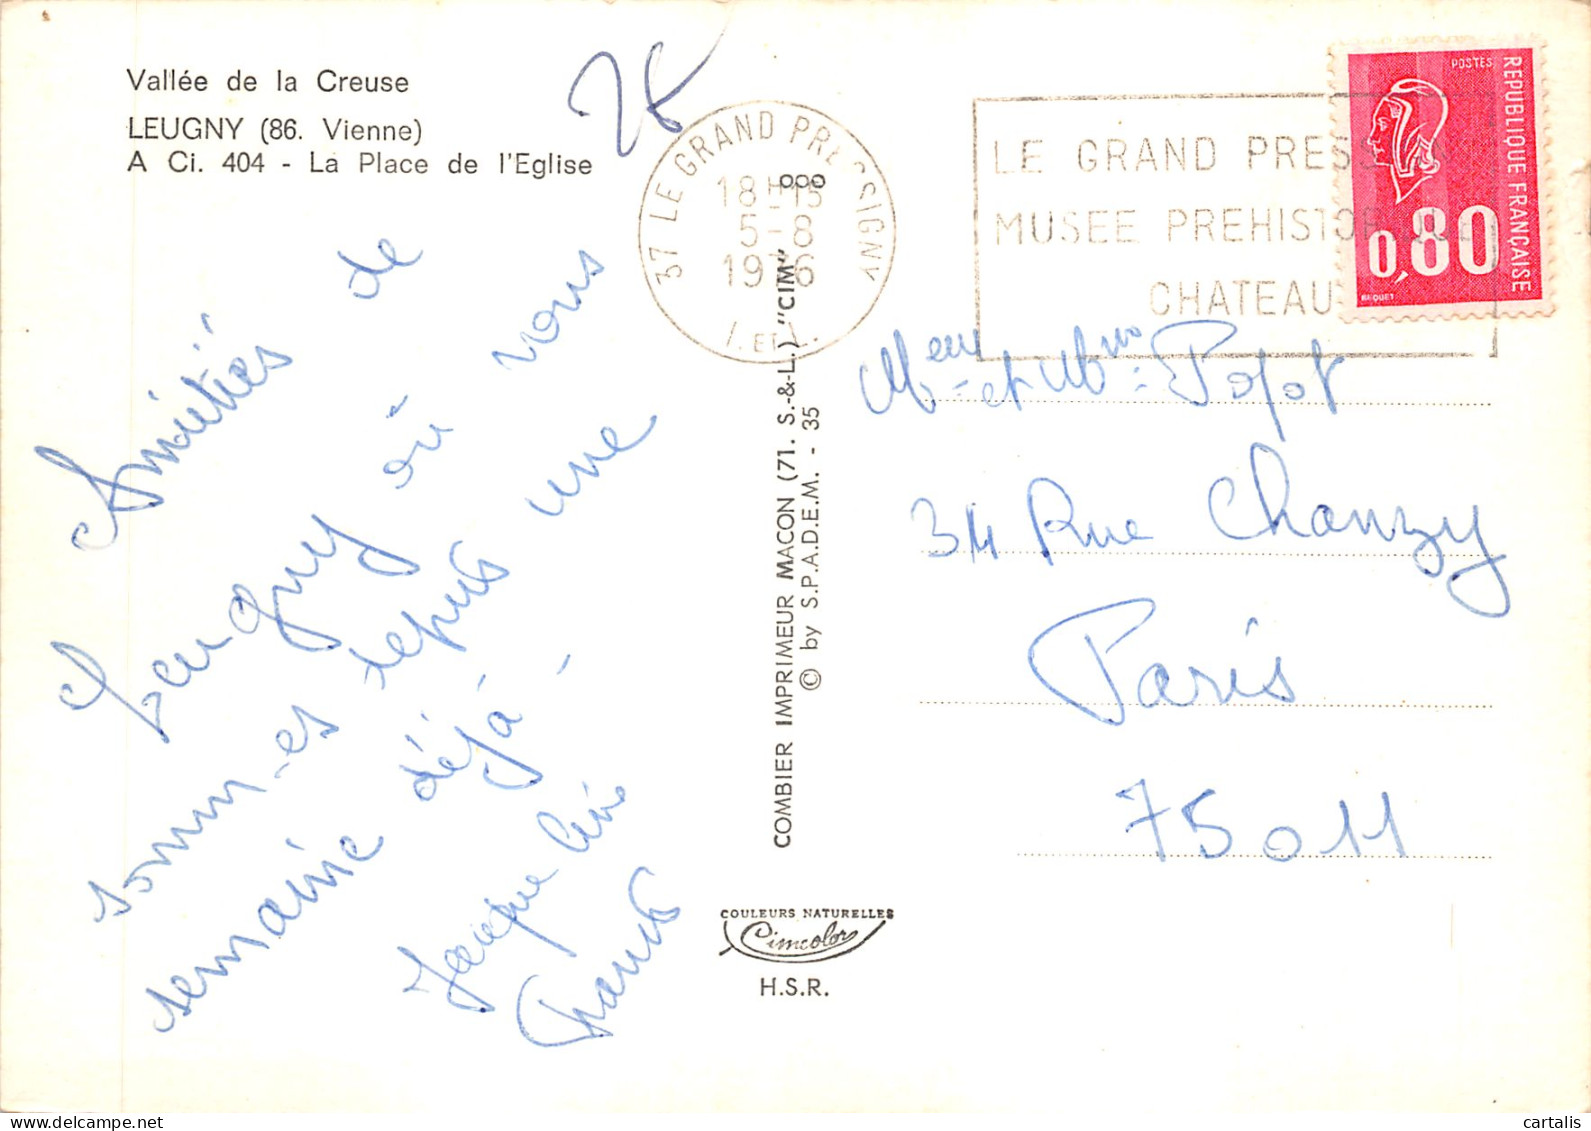 Vallée de la Creuse
LEUGNY (86. Vienne)
A Ci. 404 - La Place de l'Eglise
28
37 LE GRAND PRESSIGNY
18H15
5-8
1976
I. ET L.
LE GRAND PRESS
MUSEE PREHISTORIQUE
CHATEAU
POSTES
REPUBLIQUE FRANÇAISE
0,80
BEQUET
Amitiés de
Leugny où nous
sommes depuis une
semaine déjà -
Jacqueline
COMBIER IMPRIMEUR MACON (71. S.-&-L.) "CIM"
© by S.P.A.D.E.M. - 35
COULEURS NATURELLES
Cimcolor
H.S.R.
Meur et Mme Popot
34 Rue Chanzy
Paris
75011
cartalis